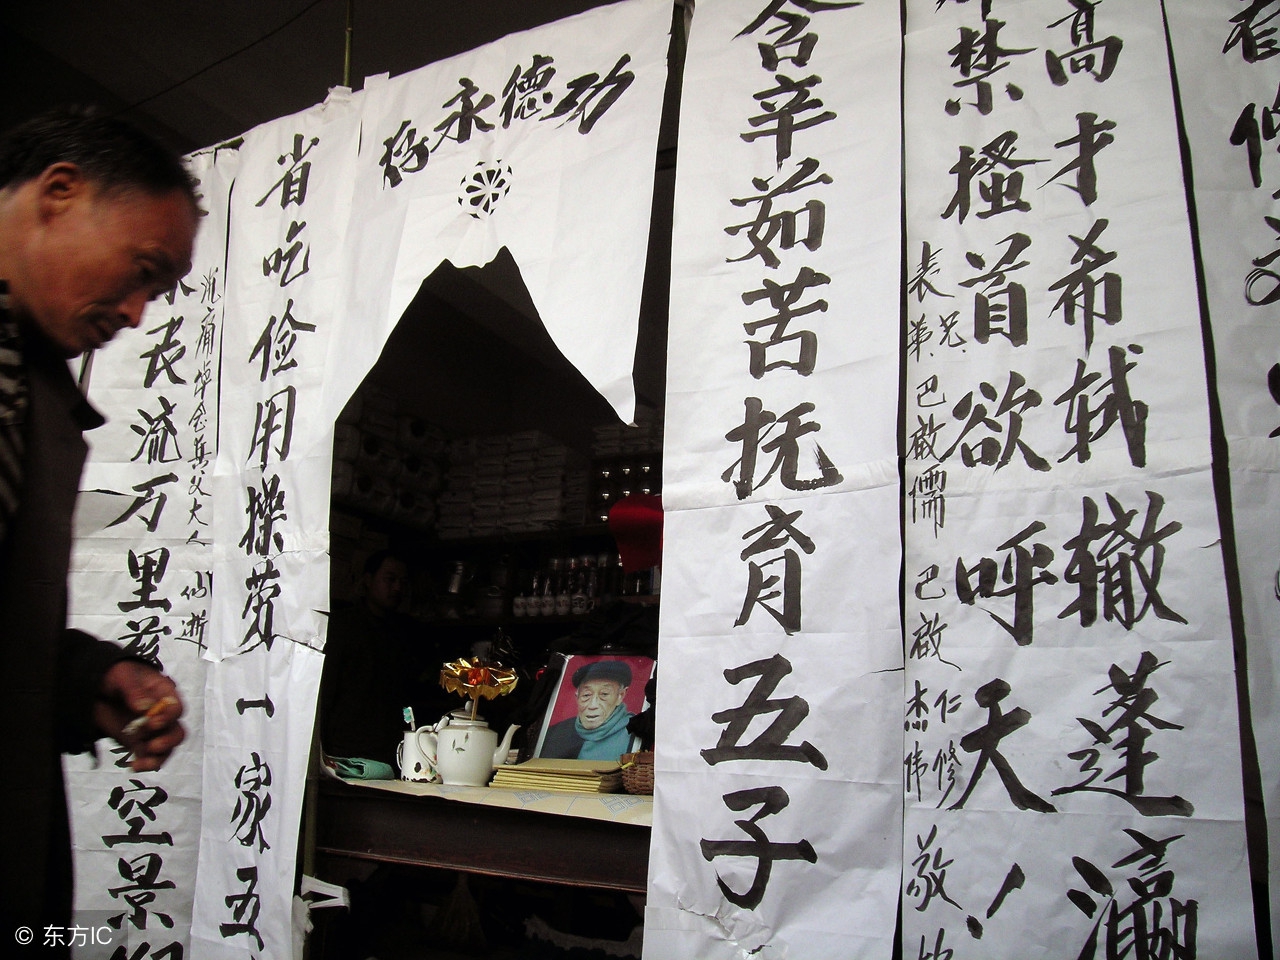 高才希轼辙蓬瀛
禁搔首欲呼天！
表兄弟 巴啟儒 巴啟仁 杰修伟 敬
含辛茹苦抚育五子
功德永存
省吃俭用操劳一家五
沉痛悼念岳父大人仙逝
丧流万里
空景
© 东方IC